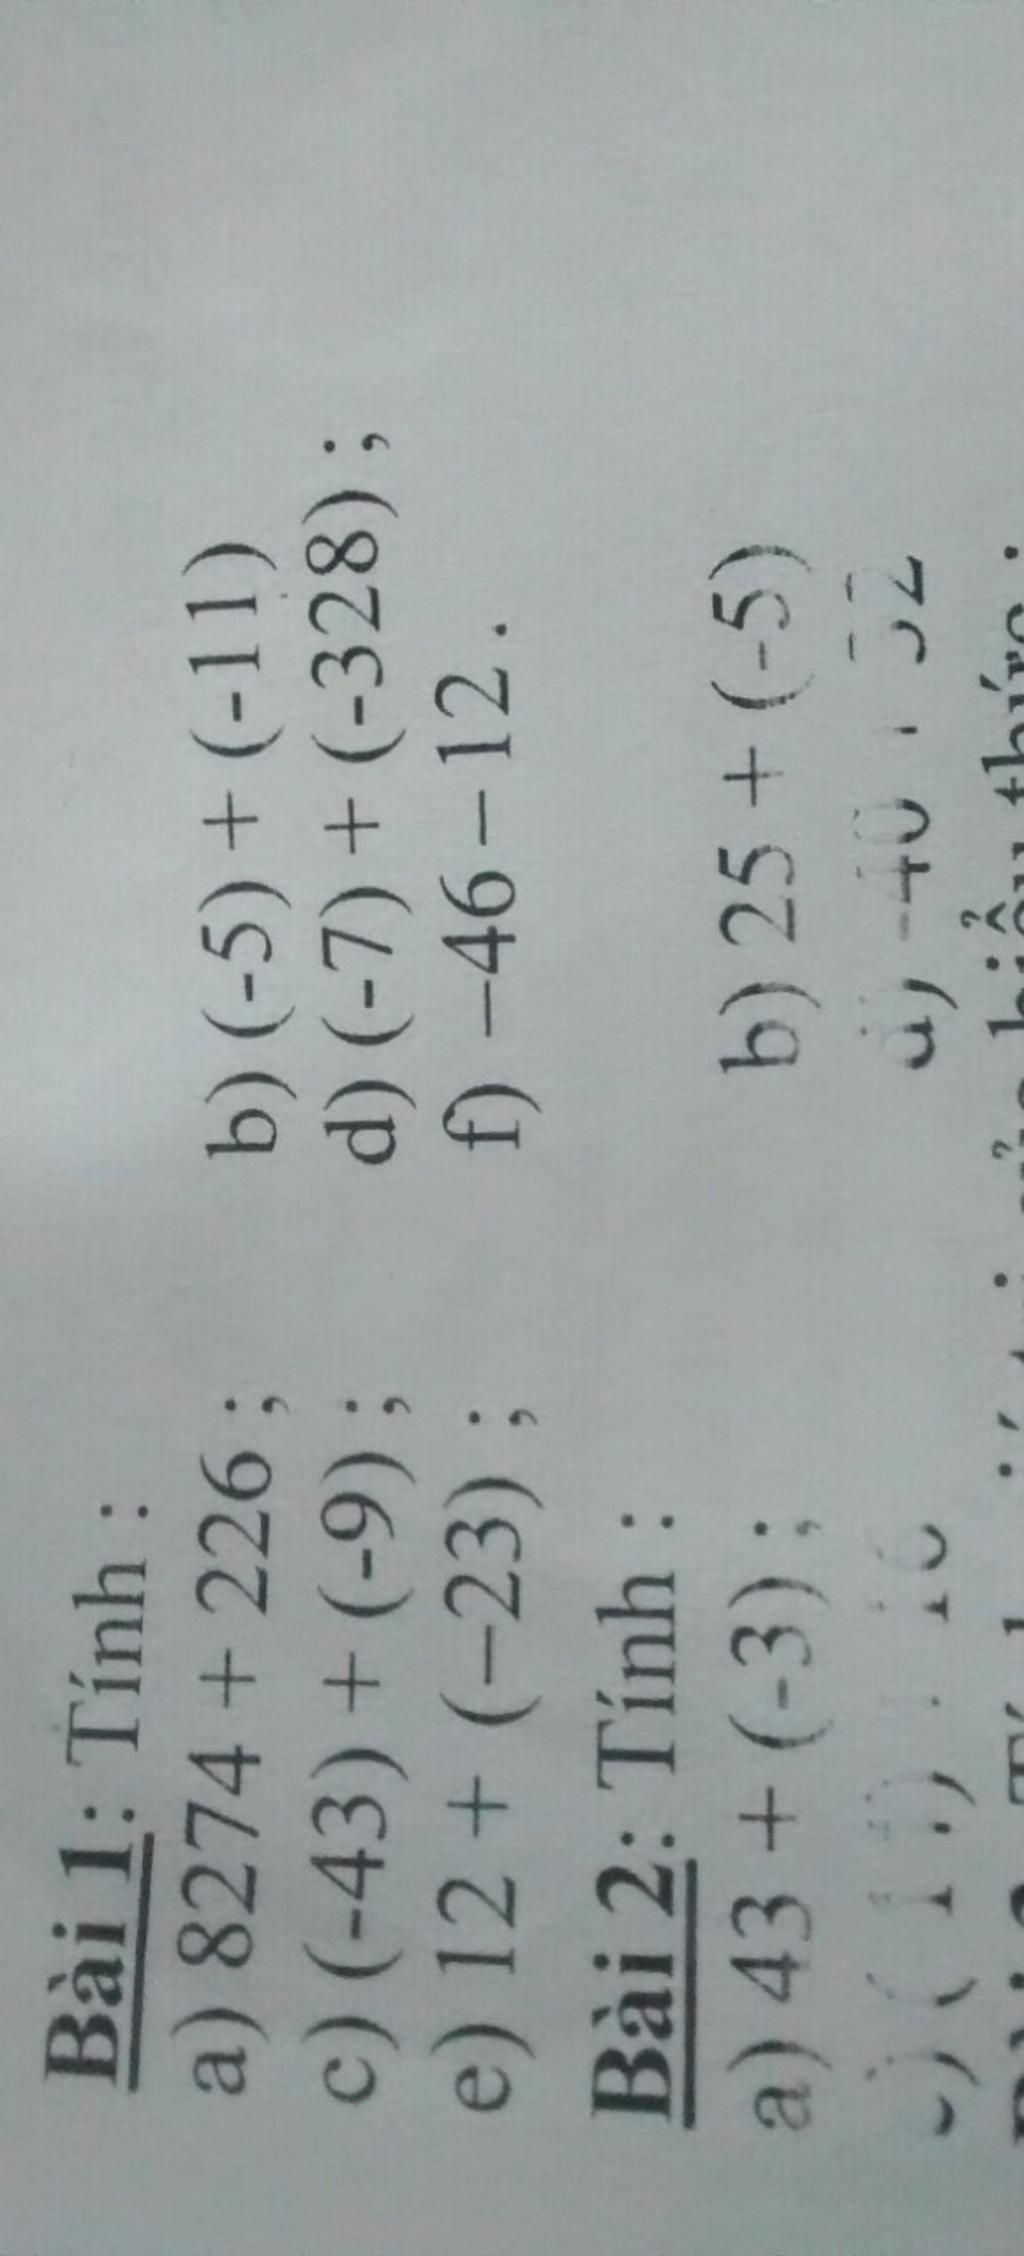 Bài 1: Tính :
a) 8274 + 226 ; b) (-5) + (-11)
c) (-43) + (-9) ; d) (-7) + (-328) ;
e) 12 + (−23) ; f) −46 − 12 .
Bài 2: Tính :
a) 43 + (-3) ; b) 25 + (-5)